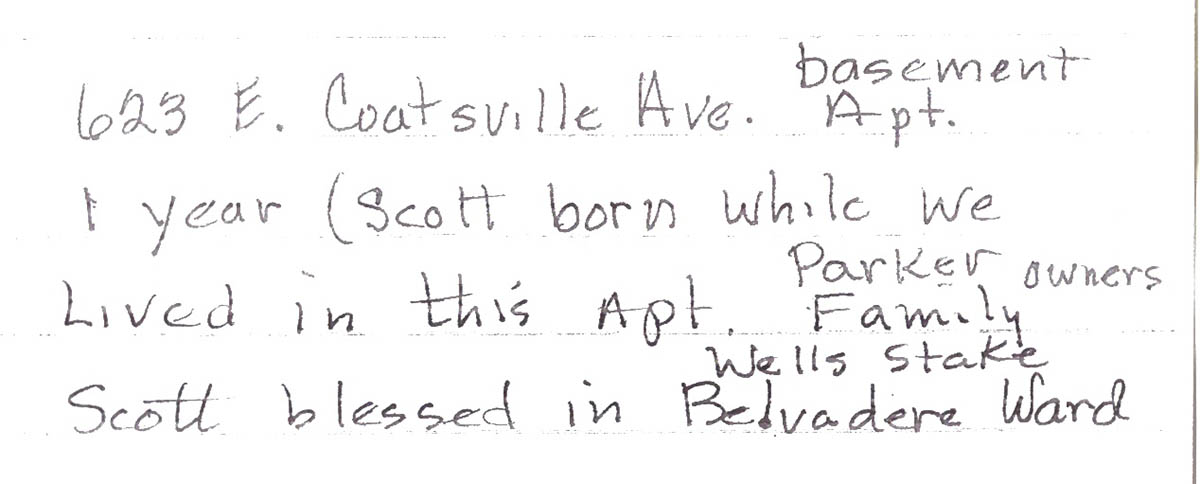 basement
623 E. Coatsville Ave. Apt.
1 year (Scott born while we
Parker owners
Lived in this Apt. Family
Wells Stake
Scott blessed in Belvadere Ward